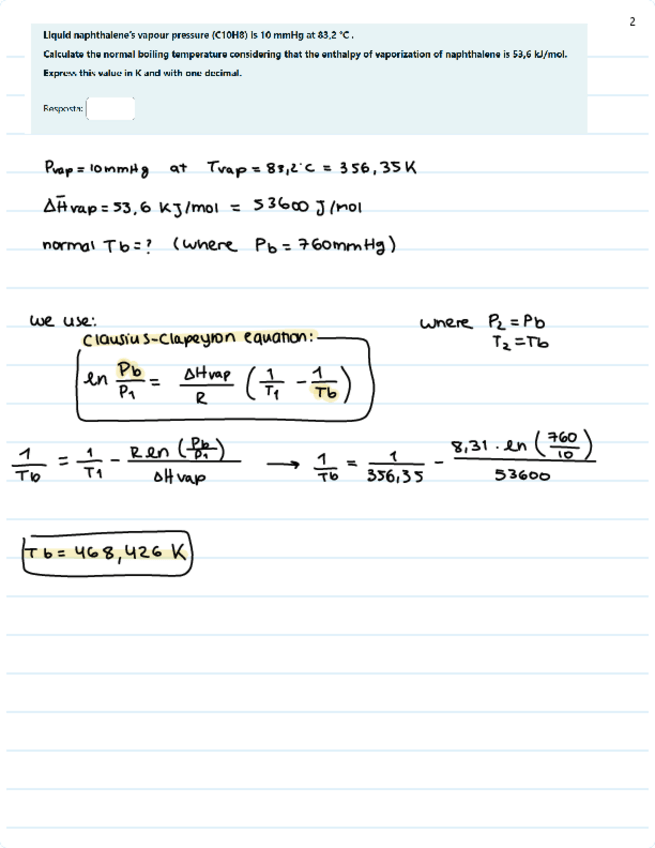 2
Liquid naphthalene's vapour pressure (C10H8) is 10 mmHg at 83,2 °C.
Calculate the normal boiling temperature considering that the enthalpy of vaporization of naphthalene is 53,6 kJ/mol.
Express this value in K and with one decimal.
Resposta:
Pvap = 10mmHg at Tvap = 83,2°C = 356,35K
ΔH̄vap = 53,6 KJ/mol = 53600 J/mol
normal Tb = ? (where Pb = 760mmHg)
we use:
Clausius-Clapeyron equation:
where P2 = Pb
T2 = Tb
en Pb/P1 = ΔHvap/R (1/T1 - 1/Tb)
1/Tb = 1/T1 - R en (Pb/P1)/ΔHvap → 1/Tb = 1/356,35 - 8,31 · en (760/10)/53600
Tb = 468,426 K